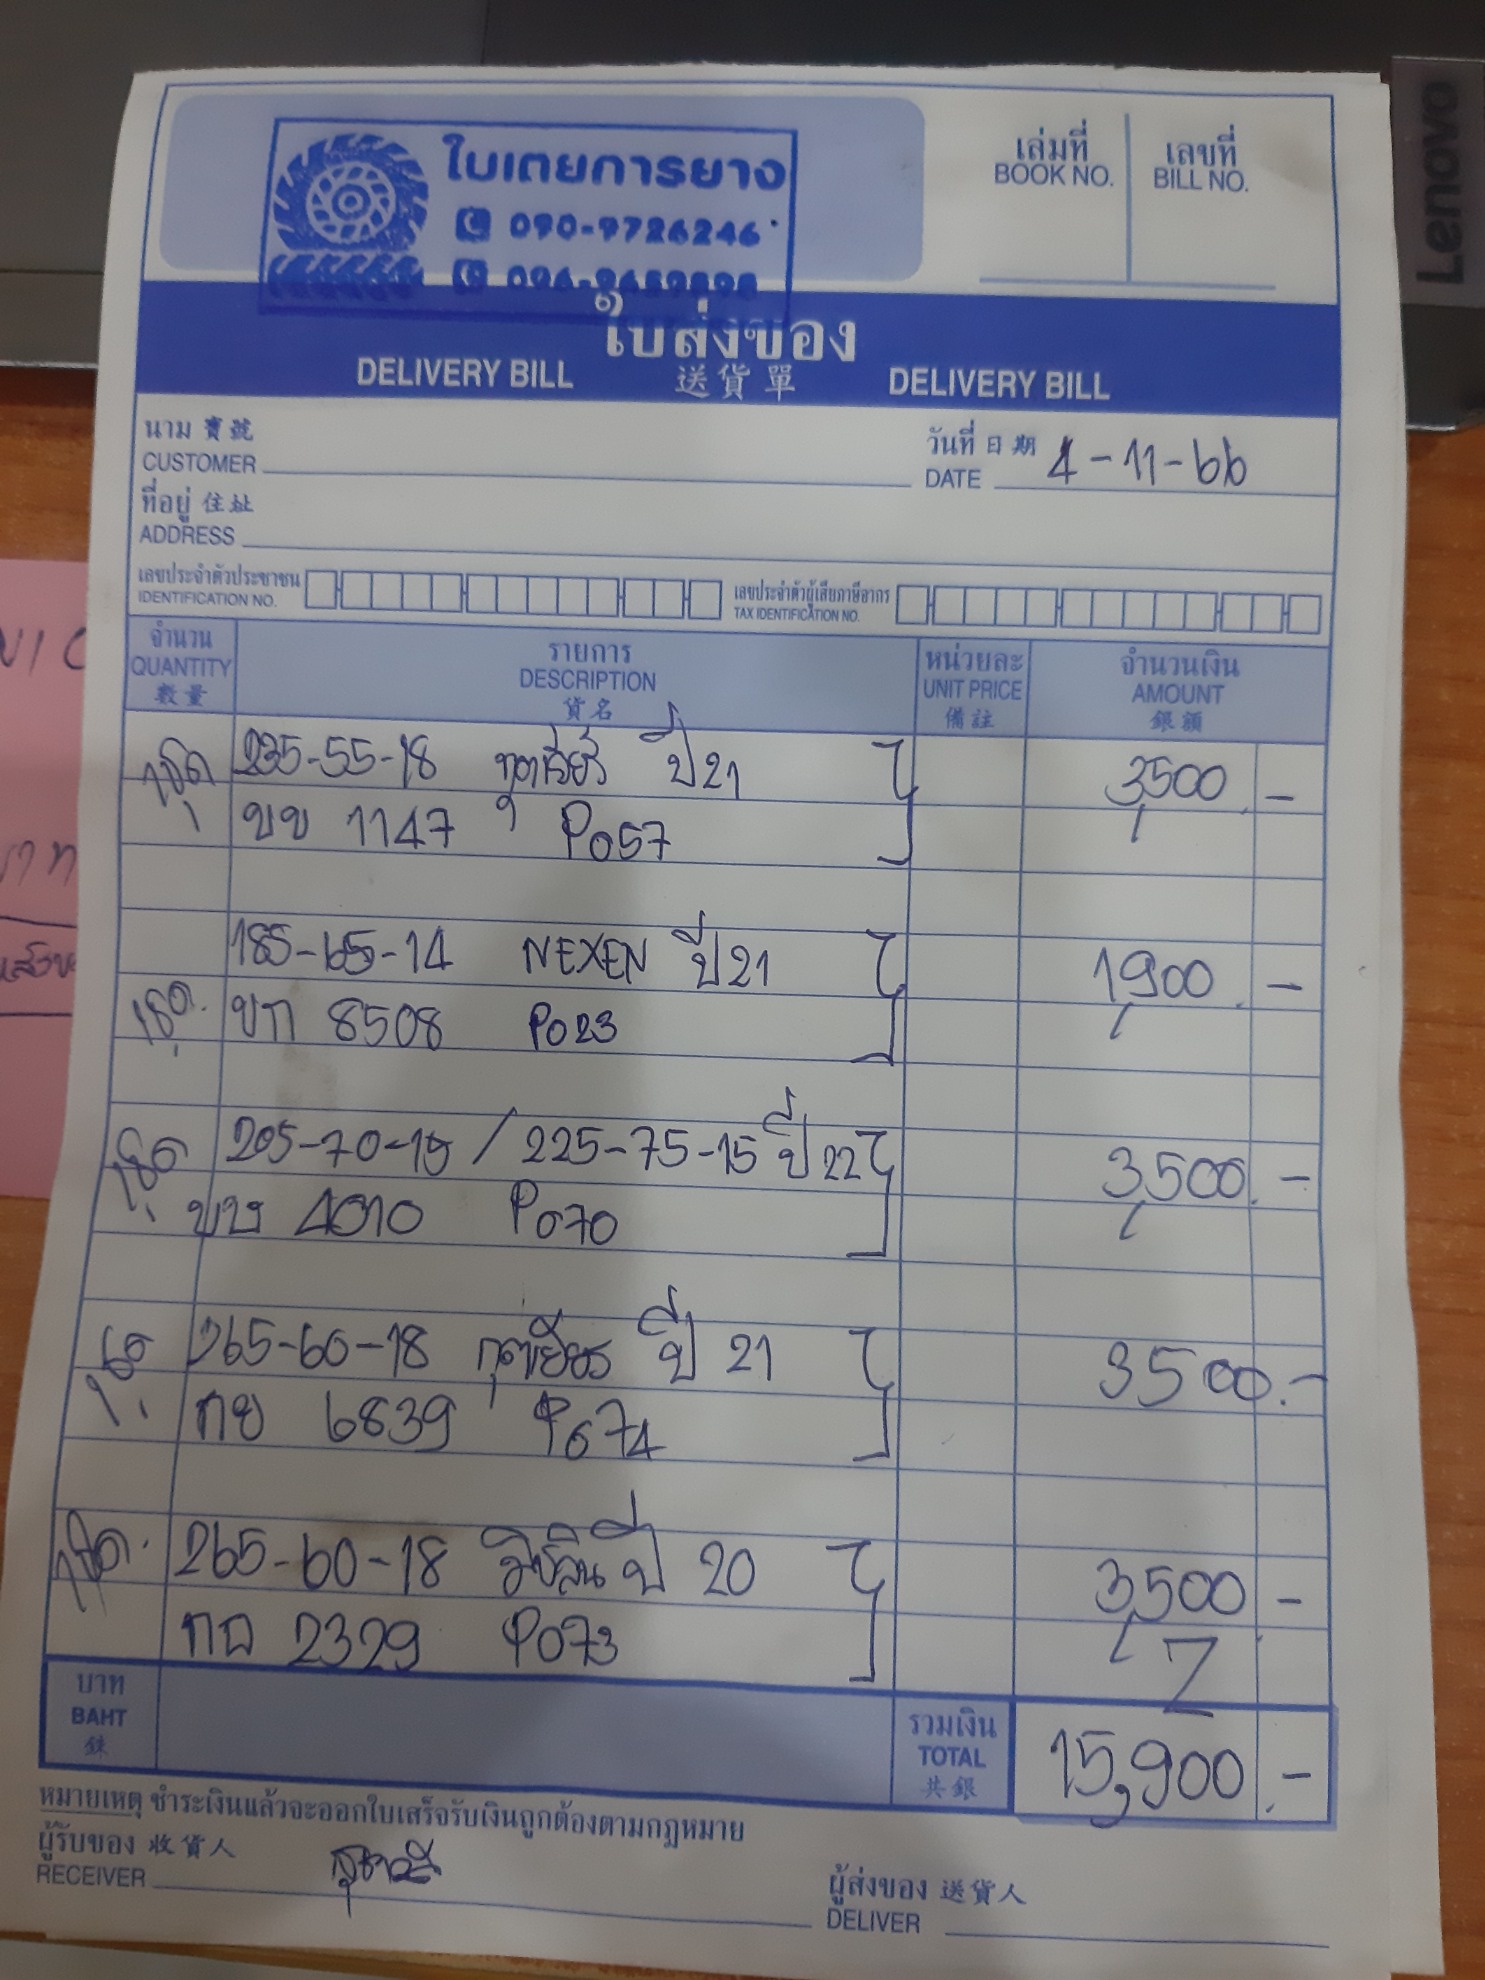 Lenovo
ใบเตยการยาง
090-9726246
เล่มที่
BOOK NO.
เลขที่
BILL NO.
ใบส่งของ
DELIVERY BILL 送貨單 DELIVERY BILL
นาม 寶號
CUSTOMER
วันที่ 日期
DATE 4-11-66
ที่อยู่ 住址
ADDRESS
เลขประจำตัวประชาชน
IDENTIFICATION NO.
เลขประจำตัวผู้เสียภาษีอากร
TAX IDENTIFICATION NO.
จำนวน
QUANTITY
數量
รายการ
DESCRIPTION
貨名
หน่วยละ
UNIT PRICE
備註
จำนวนเงิน
AMOUNT
銀額
1ชุด 235-55-18 ปี 21 3,500 -
ขข 1147 P057
185-65-14 NEXEN ปี 21 1,900 -
1ชุด. ขก 8508 P023
1ชุด 205-70-15 / 225-75-15 ปี 22 3,500 -
4010 P070
1ชุด 265-60-18 กุดเยียร ปี 21 3500.-
กย 6839 P074
1ชุด. 265-60-18 มิชลิน ปี 20 3,500 -
2329 P073
บาท
BAHT
銖
รวมเงิน
TOTAL
共銀
15,900.-
หมายเหตุ ชำระเงินแล้วจะออกใบเสร็จรับเงินถูกต้องตามกฎหมาย
ผู้รับของ 收貨人
RECEIVER
ผู้ส่งของ 送貨人
DELIVER